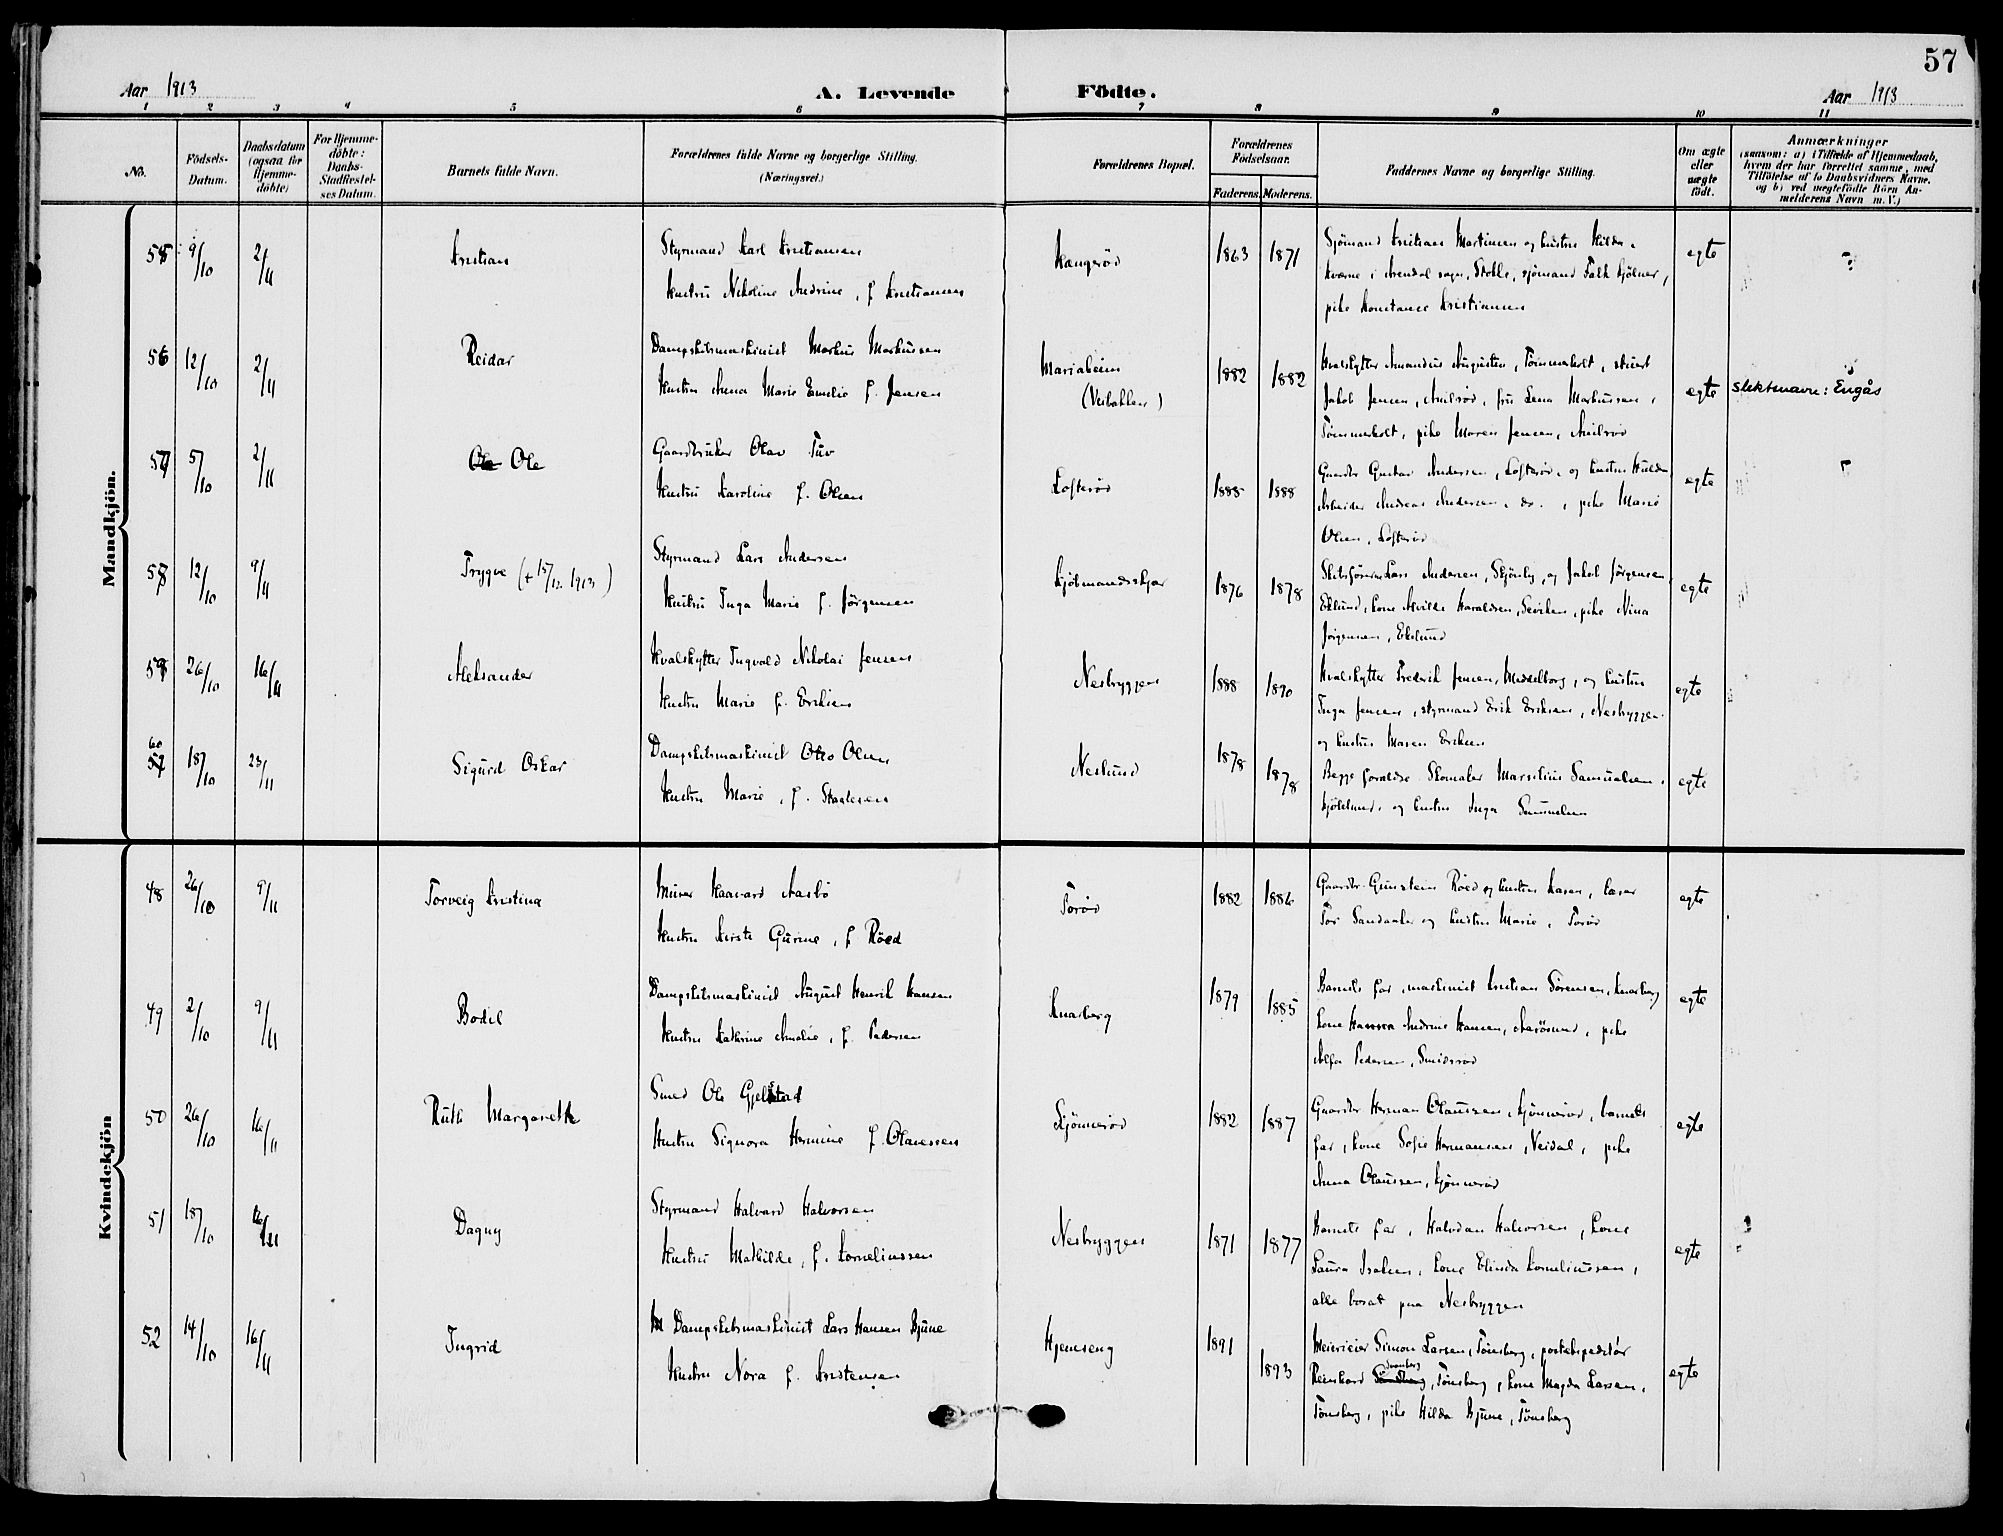 57
Aar 1913
A. Levende Födte.
Aar 1913
1 2 3 4 5 6 7 8 9 10 11
No.
Födsels-Datum.
Daabsdatum (ogsaa for Hjemme-döbte)
For Hjemme-döbte: Daabs-Stadfæstel-ses Datum.
Barnets fulde Navn.
Forældrenes fulde Navne og borgerlige Stilling. (Næringsvei.)
Forældrenes Bopæl.
Forældrenes Födselsaar.
Faderens. Moderens.
Faddernes Navne og borgerlige Stilling.
Om ægte eller uægte födt.
Anmærkninger
(saasom: a) i Tilfælde af Hjemmedaab, hvem der har forrettet samme, med Tilföielse af to Daabsvidners Navne, og b) ved uægtefödte Börn An-melderens Navn m. V.)
Mandkjön.
55 9/10 2/11 Kristian
Styrmand Karl Kristiansen
Hustru Nikoline Andrine, f. Kristiansen
Kangsrød 1863 1871
Sjömand Kristian Martinsen og hustru Hilda,
Kværne i Arendal sogn, sjömand Falk Kjölner,
pike Konstance Kristiansen
egte
56 12/10 2/11 Reidar
Dampskibsmaskinist Markus Markussen
Hustru Anna Marie Emelie f. Jensen
Mariaheim
(Vesbakken)
1882 1882
Hvalskytter Amandus Augusten, Tømmerholt, stuert
Jakob Jensen, fru Lena Markussen,
Tømmerholt, pike Maren Jensen
egte
slektsnavn: Engås
57 5/10 2/11 Ole
Gaardbruker Olav Tuv
Hustru Karoline f. Olsen
Lofterød 1885 1888
Gaardbr Gustav Andersen, Lofterød, og hustru Hulda,
Arbeider Andreas Andersen, do., pike Marie
Olsen, Lofterød
egte
58 12/10 9/11 Trygve (+ 15/12 1913)
Styrmand Lars Andersen
Hustru Inga Marie f. Jörgensen
Kjöbmandsskjær 1876 1878
Skibsförer Lars Andersen, Skjønby, og Jakob Jörgensen,
Eklund, kone Alvilde Haraldsen, pike Nina
Jörgensen, Eklund
egte
59 26/10 16/11 Aleksander
Hvalskytter Ingvald Nikolai Jensen
Hustru Marie f. Eriksen
Nesbryggen 1888 1890
Hvalskytter Fredrik Jensen, Middelborg, og hustru
Inga Jensen, styrmand Erik Eriksen, Nesbryggen
og hustru Maren Eriksen
egte
60 18/10 23/11 Sigurd Oskar
Dampskibsmaskinist Otto Olsen
Hustru Marie, f.
Neslund 1878 1878
Begge foreldre. Skomaker Marselius Samuelsen,
og hustru Inga Samuelsen
egte
Kvindekjön
48 26/10 9/11 Torveig Kristina
Murer Haavard Aasbö
Hustru Kirsti Gurine, f. Röed
Torød 1882 1886
Gaardbr. Gunstein Röed og hustru Karen, lærer
Tor Sandaaker og hustru Marie, Torød
egte
49 2/10 9/11 Bodil
Dampskibsmaskinist August Henrik Hansen
Hustru Kathrine Amalie, f. Pedersen
Knarberg 1879 1885
Barnets far, maskinist Kristian Sörensen, Knarberg
kone Andrine Hansen, Aarösund, pike
Alfa Pedersen, Smidsrød
egte
50 26/10 16/11 Ruth Margarethe
Smed Ole Gjelstad
Hustru Signora Hermine f. Olaussen
Kjønnerød 1882 1887
Gaardbr Herman Olaussen, Kjønnerød, barnets
far, kone Sofie Hermansen, Neidal, pike
Anna Olaussen, Kjønnerød
egte
51 18/10 16/11 Dagny
Styrmand Halvard Halvorsen
Hustru Mathilde, f. Korneliussen
Nesbryggen 1871 1877
Barnets far, Halvdan Halvorsen, kone
Laura Isaksen, kone Elinda Korneliussen,
alle bosat paa Nesbryggen
egte
52 14/10 16/11 Ingrid
Dampskibsmaskinist Lars Hansen Bjune
Hustru Nora f. Kristensen
Hjemseng 1891 1893
Meierieier Simon Larsen, Tönsberg, postekspeditör
Reinhard Svanberg, Tönsberg, kone Magda Larsen,
Tönsberg, pike Hilda Bjune, Tönsberg
egte